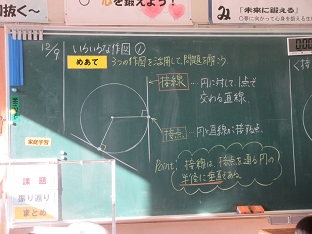 心を鍛えよう!
み 『未来に鍛える』
12/9 いろいろな作図①
めあて 3つの作図を活用して、問題を解こう。
接線 … 円に対して1点で
交わる直線。
接点 … 円と直線に接する点。
Point. 接線は、接点を通る円の
半径に垂直である。
家庭学習
課題
振り返り
まとめ